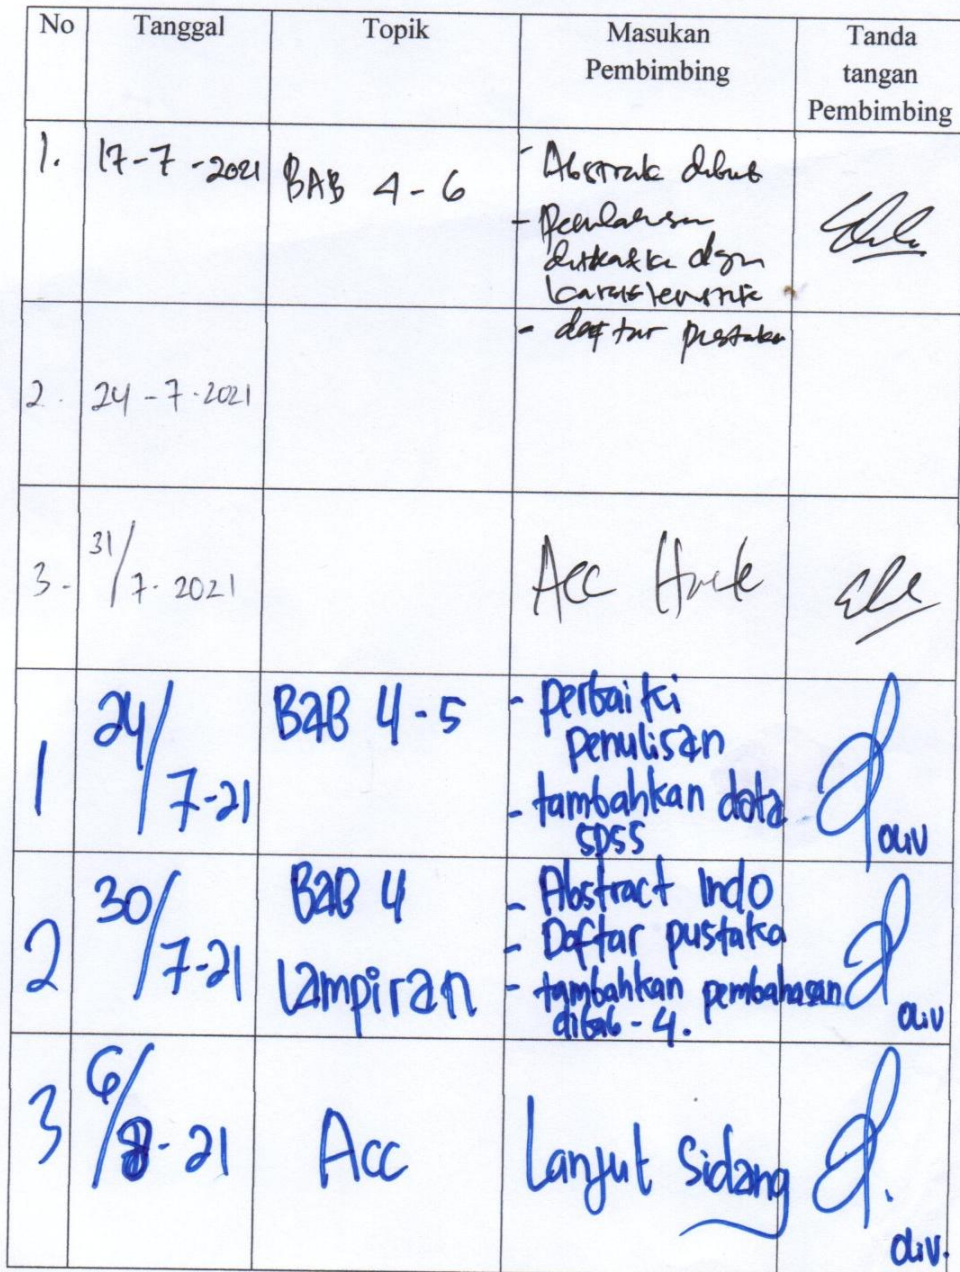 No Tanggal Topik Masukan Pembimbing Tanda tangan Pembimbing
1. 17-7-2021 BAB 4-6 - Abstrak dibuat
- Pembahasan
dikaitkan dgn
karakteristik
- daftar pustaka
2. 24-7-2021
3. 31/7-2021 Acc
1 24/7-21 BAB 4-5 - perbaiki
penulisan
- tambahkan data
SPSS
oliv
2 30/7-21 BAB 4 - Abstract Indo
- Daftar pustaka
Lampiran - tambahkan pembahasan
dibab-4.
oliv
3 6/8-21 Acc Lanjut Sidang
oliv.